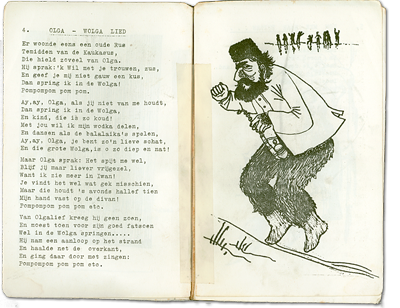 4. OLGA - WOLGA LIED
Er woonde eens een oude Rus
Temidden van de Kaukasus,
Die hield zoveel van Olga.
Hij sprak:'k Wil met je trouwen, zus,
En geef je mij niet gauw een kus,
Dan spring ik in de Wolga!
Pompompom pom pom.
Ay,ay, Olga, als jij niet van me houdt,
Dan spring ik in de Wolga,
En kind, die is zo koud!
Met jou wil ik mijn wodka delen,
En dansen als de balalaika's spelen,
Ay,ay, Olga, je bent zo'n lieve schat,
En die grote Wolga,is o zo diep en nat!
Maar Olga sprak: Het spijt me wel,
Blijf jij maar liever vrijgezel,
Want ik zie meer in Iwan!
Je vindt het wel wat gek misschien,
Maar die houdt 's avonds halfef tien
Mijn hand vast op de divan!
Pompompom pom pom etc.
Van Olgalief kreeg hij geen zoen,
En moest toen voor zijn goed fatsoen
Wel in de Wolga springen.....
Hij nam een aanloop op het strand
En haalde net de overkant,
En ging daar door met zingen:
Pompompom pom pom etc.